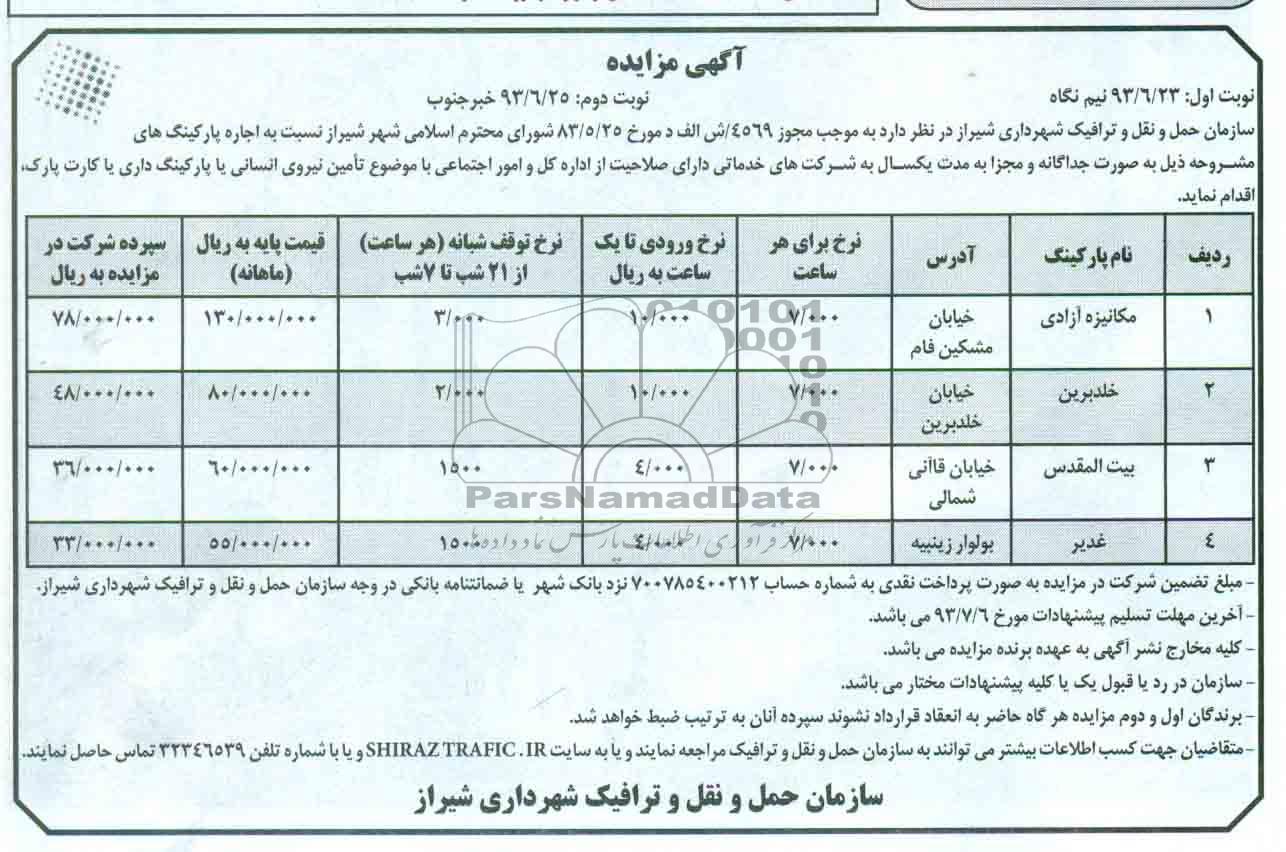 آگهی مزایده
نوبت اول: ۹۳/۶/۲۳ نیم نگاه
نوبت دوم: ۹۳/۶/۲۵ خبرجنوب
سازمان حمل و نقل و ترافیک شهرداری شیراز در نظر دارد به موجب مجوز ۴۵۶۹/ش الف د مورخ ۸۳/۵/۲۵ شورای محترم اسلامی شهر شیراز نسبت به اجاره پارکینگ های
مشروحه ذیل به صورت جداگانه و مجزا به مدت یکسال به شرکت های خدماتی دارای صلاحیت از اداره کل و امور اجتماعی با موضوع تأمین نیروی انسانی یا پارکینگ داری یا کارت پارک،
اقدام نماید.
ردیف نام پارکینگ آدرس نرخ برای هر ساعت نرخ ورودی تا یک ساعت به ریال نرخ توقف شبانه (هر ساعت) از ۲۱ شب تا ۷شب قیمت پایه به ریال (ماهانه) سپرده شرکت در مزایده به ریال
۱ مکانیزه آزادی خیابان مشکین فام ۷/۰۰۰ ۱۰/۰۰۰ ۳/۰۰۰ ۱۳۰/۰۰۰/۰۰۰ ۷۸/۰۰۰/۰۰۰
۲ خلدبرین خیابان خلدبرین ۷/۰۰۰ ۱۰/۰۰۰ ۲/۰۰۰ ۸۰/۰۰۰/۰۰۰ ۴۸/۰۰۰/۰۰۰
۳ بیت المقدس خیابان قاآنی شمالی ۷/۰۰۰ ۴/۰۰۰ ۱۵۰۰ ۶۰/۰۰۰/۰۰۰ ۳۶/۰۰۰/۰۰۰
ParsNamadData
۴ غدیر بولوار زینبیه ۷/۰۰۰ ۴/۰۰۰ ۱۵۰۰ ۵۵/۰۰۰/۰۰۰ ۳۳/۰۰۰/۰۰۰
- مبلغ تضمین شرکت در مزایده به صورت پرداخت نقدی به شماره حساب ۷۰۰۷۸۵۴۰۰۲۱۲ نزد بانک شهر یا ضمانتنامه بانکی در وجه سازمان حمل و نقل و ترافیک شهرداری شیراز.
- آخرین مهلت تسلیم پیشنهادات مورخ ۹۳/۷/۶ می باشد.
- کلیه مخارج نشر آگهی به عهده برنده مزایده می باشد.
- سازمان در رد یا قبول یک یا کلیه پیشنهادات مختار می باشد.
- برندگان اول و دوم مزایده هر گاه حاضر به انعقاد قرارداد نشوند سپرده آنان به ترتیب ضبط خواهد شد.
- متقاضیان جهت کسب اطلاعات بیشتر می توانند به سازمان حمل و نقل و ترافیک مراجعه نمایند و یا به سایت SHIRAZ TRAFIC . IR و یا با شماره تلفن ۳۲۳۴۶۵۳۹ تماس حاصل نمایند.
سازمان حمل و نقل و ترافیک شهرداری شیراز